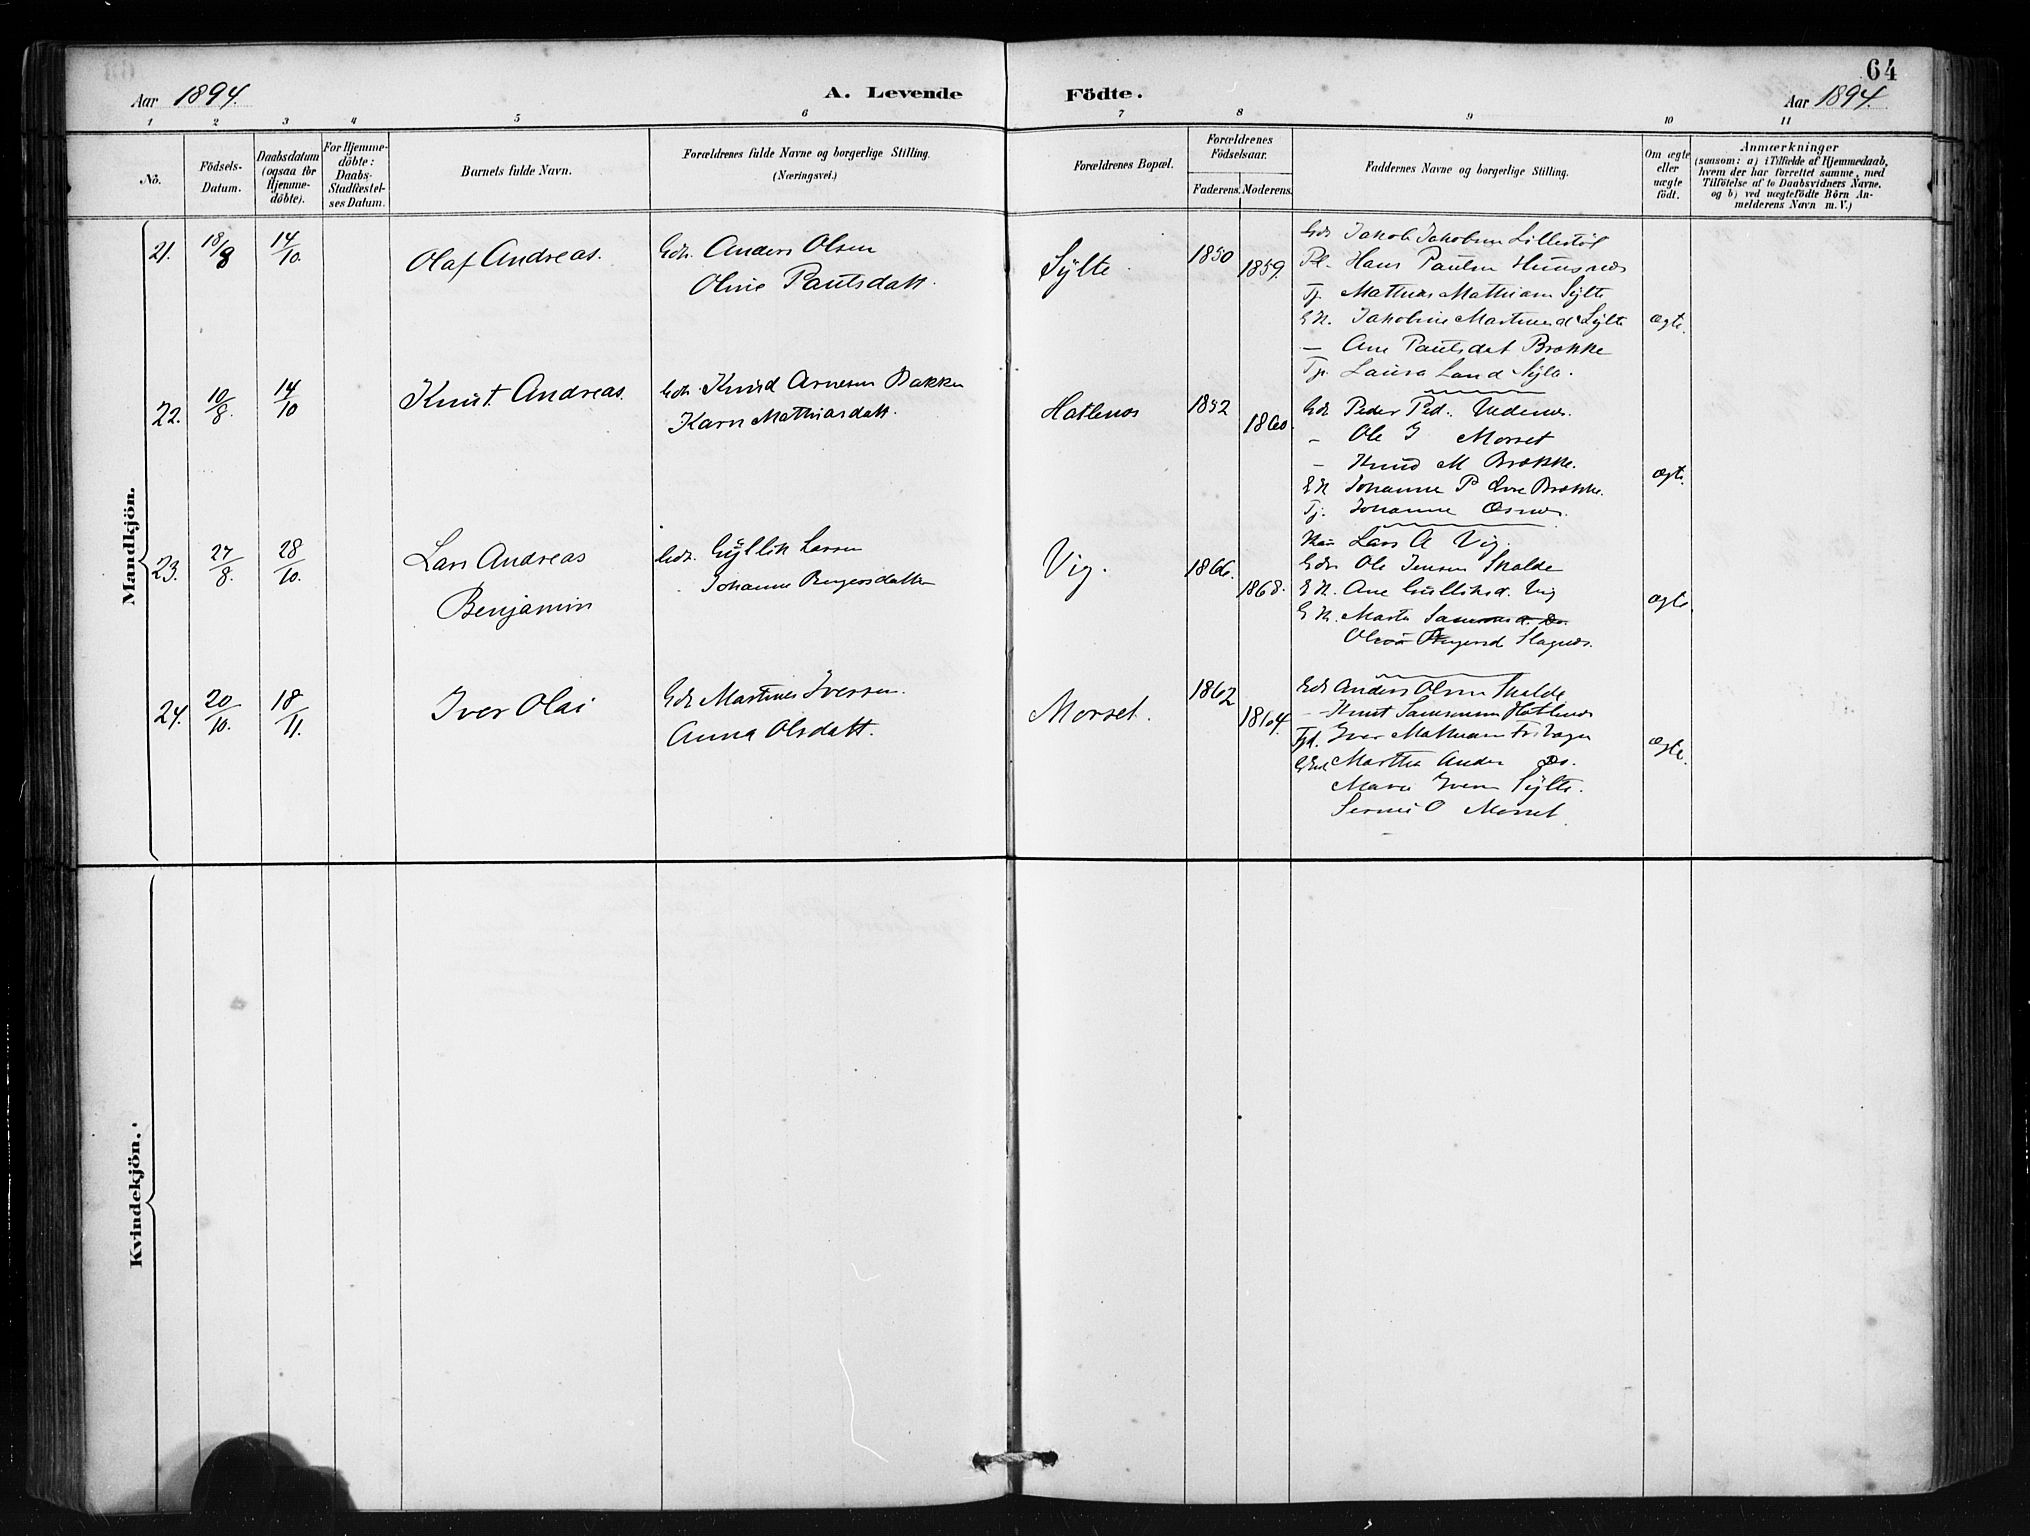 64
Aar 1894.
A. Levende Födte.
Aar 1894.
1 2 3 4 5 6 7 8 9 10 11
No.
Födsels-Datum.
Daabsdatum (ogsaa for Hjemme-döbte).
For Hjemme-döbte: Daabs-Stadfæstel-ses Datum.
Barnets fulde Navn.
Forældrenes fulde Navne og borgerlige Stilling.
(Næringsvei.)
Forældrenes Bopæl.
Forældrenes Födselsaar.
Faderens. Moderens.
Faddernes Navne og borgerlige Stilling.
Om ægte eller uægte födt.
Anmærkninger
(saasom: a) i Tilfælde af Hjemmedaab,
hvem der har forrettet samme, med
Tilföielse af to Daabsvidners Navne,
og b) ved uægtefödte Börn An-
melderens Navn m. V.)
Mandkjön.
21. 18/8 14/10. Olaf Andreas. Gdr. Anders Olsen
Oline Paulsdatt.
Sylte. 1850 1859.
Gdr Jakob Jakobsen Lillestöl
Pl. Hans Paulsen
Tj. Mathias Mathiasen Sylte
G.K. Jakobine Martines d. Sylte
— Ane Paulsdat Brække
Tj. Laura Sylte.
ægte.
22. 10/8. 14/10 Knut Andreas. Gdr. Knud Arnesen Bakken
Karn Mathiasdatt.
Hatlenes 1852 1860.
Gdr Peder Ped.
- Ole I Morset
- Knud M Brække.
G K Johanne P Brække.
Tj. Johanne
ægte.
23. 27/8. 28/10. Lars Andreas
Benjamin
Gdr. Gyllik Larsen
Johanne Bengersdatter
Vig. 1866. 1868.
Lars A Vig.
Gdr. Ole Jensen Skalde
G K. Ane Gulliksd. Vig
G K. Marte
ægte
24. 20/10. 18/11. Iver Olai Gdr Martines Iversen.
Anna Olsdatt.
Morset. 1862 1864.
Gdr Anders Olsen Skalde
- Knut Samsonsen Hatlenes
Iver Mathiasen
Martha Do.
Marie Iversen Sylte.
O Morset.
ægte.
Kvindekjön.